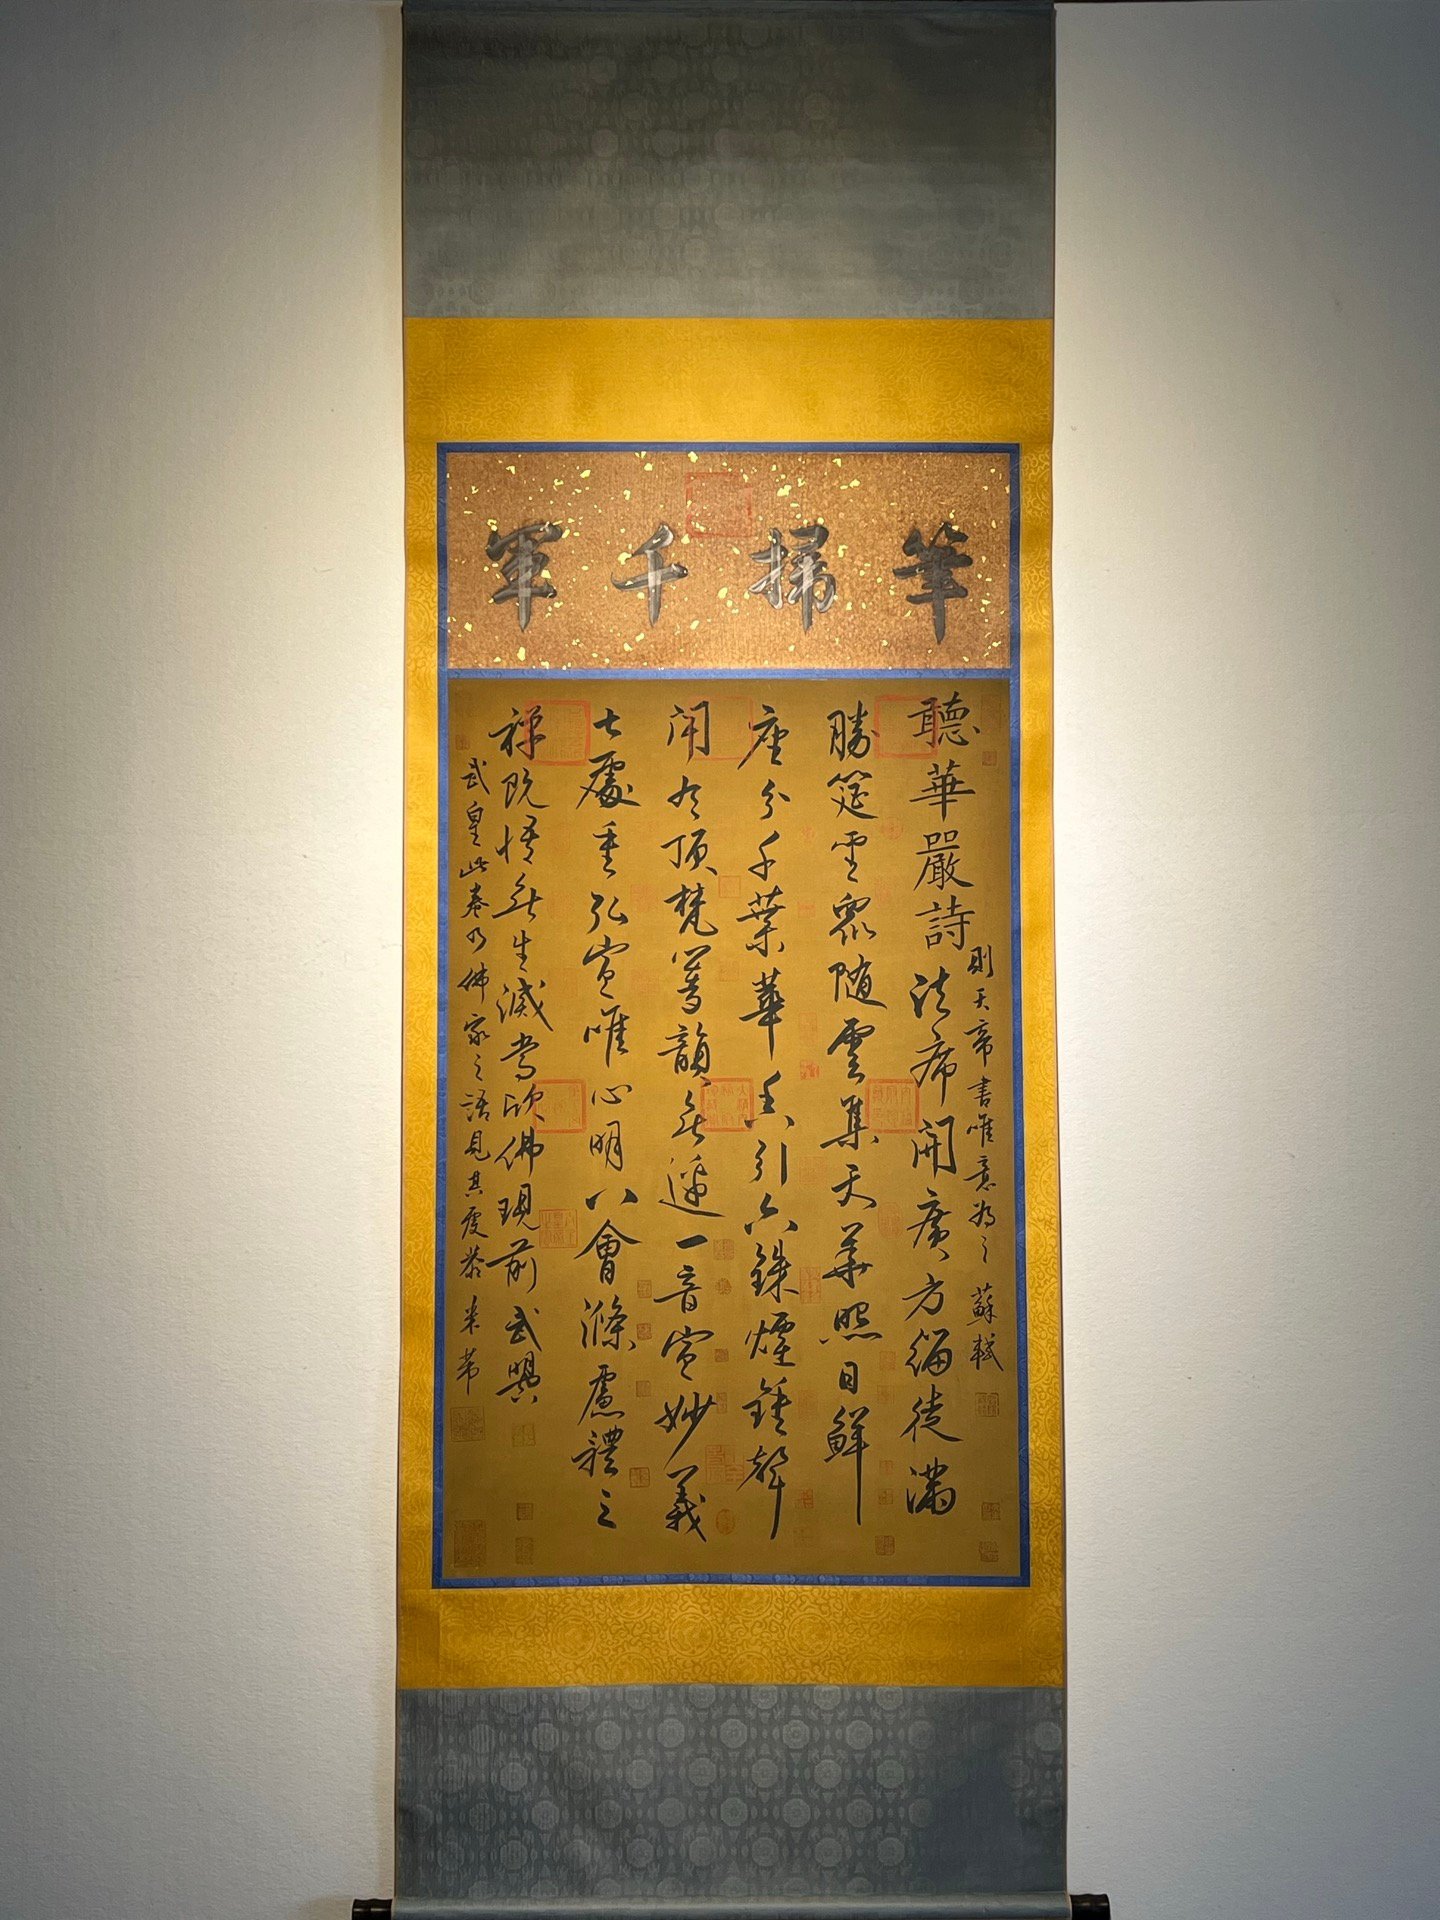 筆掃千軍
聽華嚴詩 法席開廣方緇徒滿
勝筵聖眾隨雲集天華照日鮮
座分千葉華香引六銖煙鍾聲
聞有頂梵響韻無邊一音宣妙義
七處重弘宣唯心明八會滌慮禮三
禪既悟無生滅常欣佛現前 武曌
則天帝書唯意為之 蘇軾
武皇此卷乃佛家之語見其虔恭 米芾